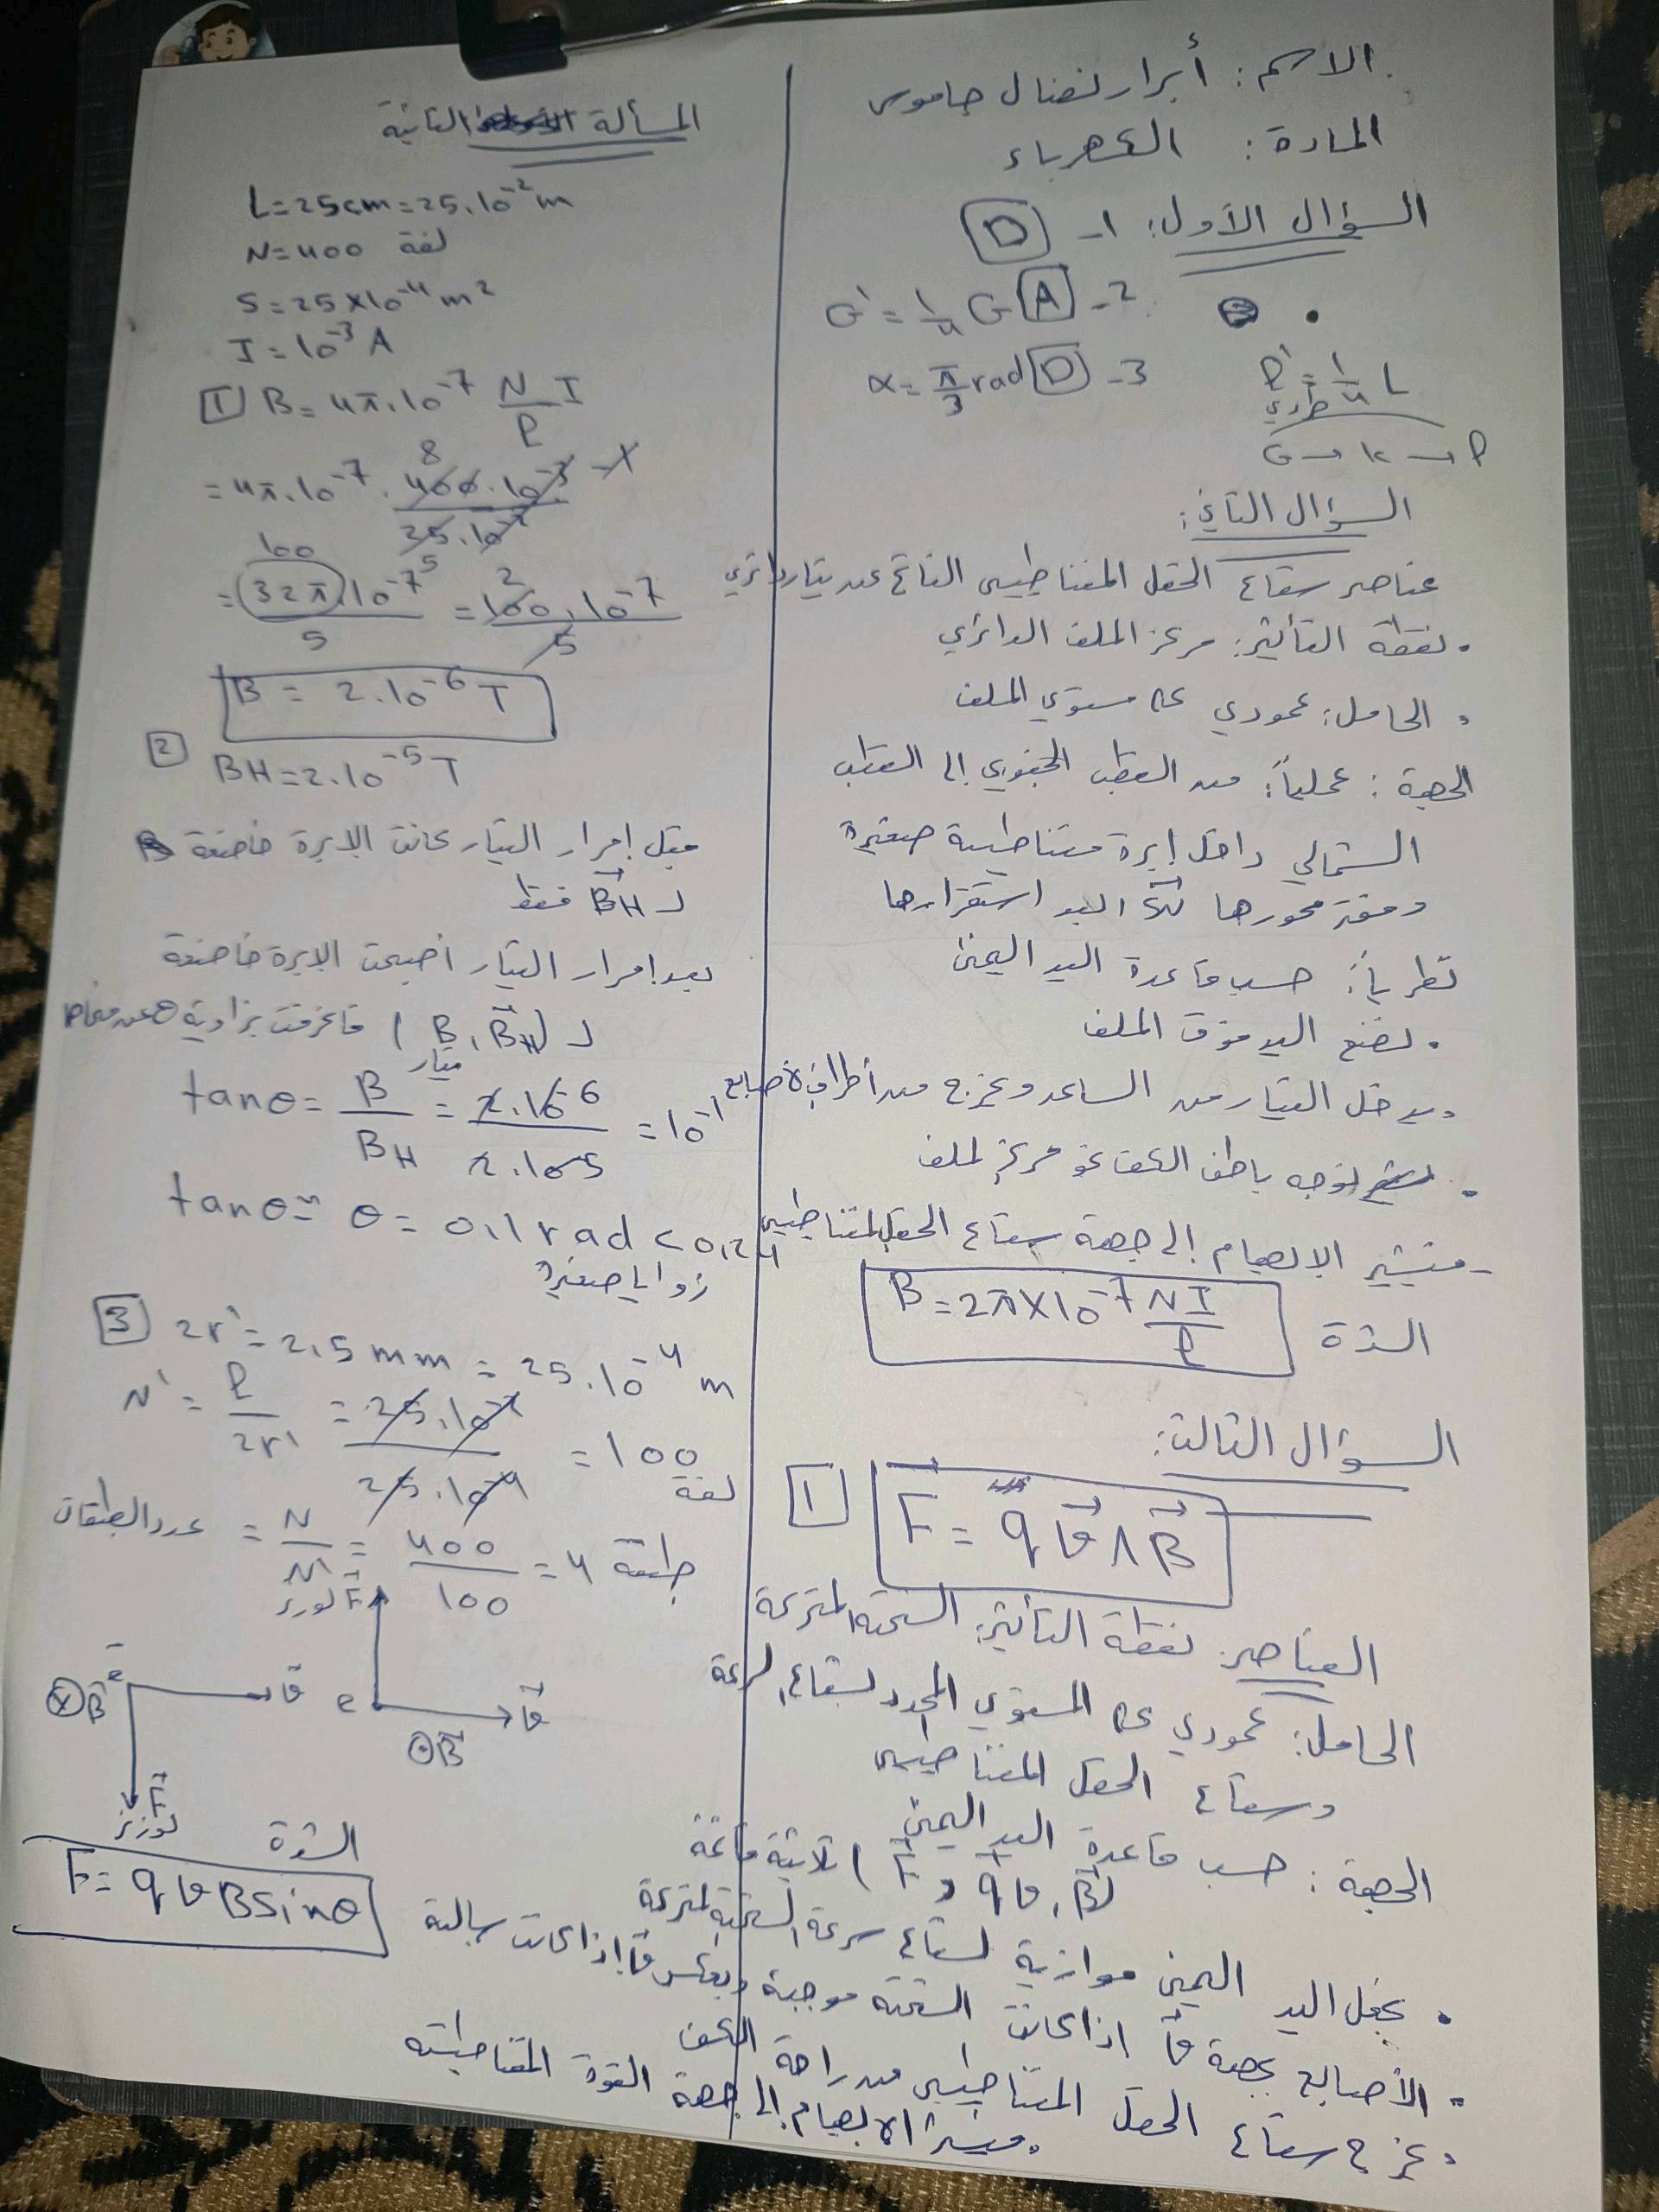 الاسم: أبرار نضال جاموس
المادة: الكهرباء
السؤال الأول: 1- D
2- A G' = 1/4 G
3- D α = π/3 rad
l' = 1/4 L
طردي
G → k → l
السؤال الثاني:
عناصر شعاع الحقل المغناطيسي الناتج عن تيار دائري
. نقطة التأثير: مركز الملف الدائري
. الحامل: عمودي على مستوي الملف
الجهة: عملياً: من القطب الجنوبي إلى القطب
الشمالي داخل إبرة مغناطيسية صغيرة
استقرارها
نظرياً: حسب قاعدة اليد اليمنى
. نضع اليد فوق الملف
. يدخل التيار من الساعد ويخرج من أطراف الأصابع
. نوجه باطن الكف نحو مركز الملف
- فيشير الإبهام إلى جهة شعاع الحقل المغناطيسي
الشدة B = 2π×10⁻⁷ NI/r
السؤال الثالث:
1 F = qv∧B
العناصر: نقطة التأثير: الشحنة المتحركة
الحامل: عمودي على المستوي المحدد بشعاع السرعة
وشعاع الحقل المغناطيسي
الجهة: حسب قاعدة اليد اليمنى
(F, qv, B) ثلاثية قائمة
. نجعل اليد اليمنى موازية لشعاع سرعة الشحنة المتحركة
. الأصابع بجهة v إذا كانت الشحنة موجبة وبعكس v إذا كانت سالبة
. يخرج شعاع الحقل المغناطيسي من راحة الكف
. فيشير الإبهام إلى جهة القوة المغناطيسية
المسألة الثانية
L=25cm=25.10⁻² m
N=400 لفة
S=25×10⁻⁴ m²
I=10⁻³ A
1 B=4π.10⁻⁷ N/l I
=4π.10⁻⁷ . 400.10⁻³ / 25.10⁻²
= 32π.10⁻⁷ / 5 = 100.10⁻⁷ / 5
B = 2.10⁻⁶ T
2 BH=2.10⁻⁵ T
قبل إمرار التيار كانت الإبرة خاضعة
لـ BH فقط
بعد إمرار التيار أصبحت الإبرة خاضعة
لـ (B, BH) فانحرفت بزاوية θ عن
تيار
tanθ = B/BH = 2.10⁻⁶ / 2.10⁻⁵ = 10⁻¹
tanθ ≈ θ = 0,1 rad < 0,24
زوايا صغيرة
3 2r' = 2,5 mm = 25.10⁻⁴ m
N' = l/2r' = 25.10⁻² / 25.10⁻⁴ = 100
لفة
عدد الطبقات = N/N' = 400/100 = 4 طبقة
F لورنز
e v B
e v B
F لورنز
الشدة
F = qvBsinθ